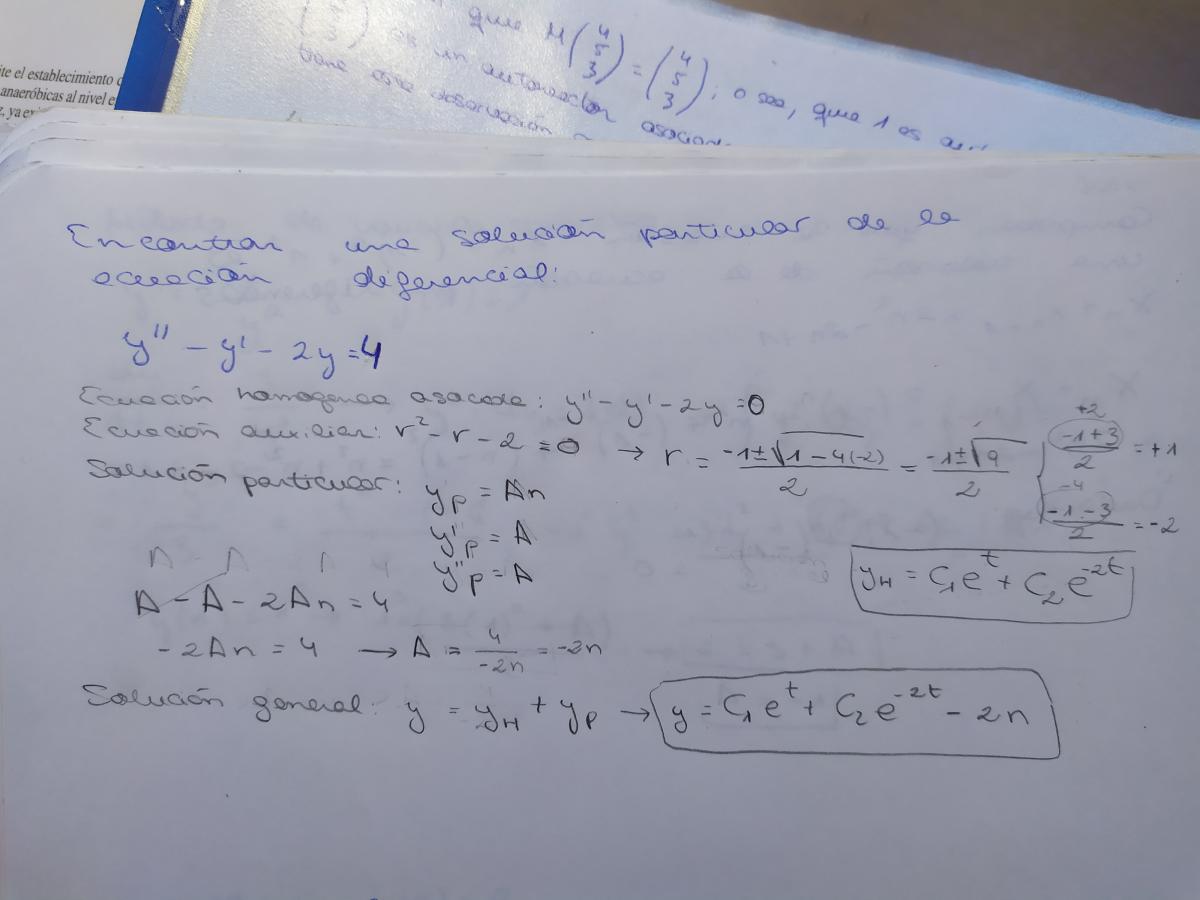 ite el establecimiento
anaeróbicas al nivel e
que M (4 5 3) = (4 5 3); o sea, que 1 es
es un autovector asociar
tiene esta observación
Encontrar una solución particular de la
ecuación diferencial:
y'' - y' - 2y = 4
Ecuación homogenea asociada: y'' - y' - 2y = 0
Ecuación auxiliar: r² - r - 2 = 0 → r = (-1 ± √(1 - 4(-2)))/2 = (-1 ± √9)/2
+2
(-1+3)/2 = +1
-4
(-1-3)/2 = -2
Solución particular: y_p = An
y'_p = A
y''_p = A
y_H = C₁e^t + C₂e^{-2t}
A A A 4
A - A - 2An = 4
-2An = 4 → A = 4/(-2n) = -2n
Solución general: y = y_H + y_p → y = C₁e^t + C₂e^{-2t} - 2n